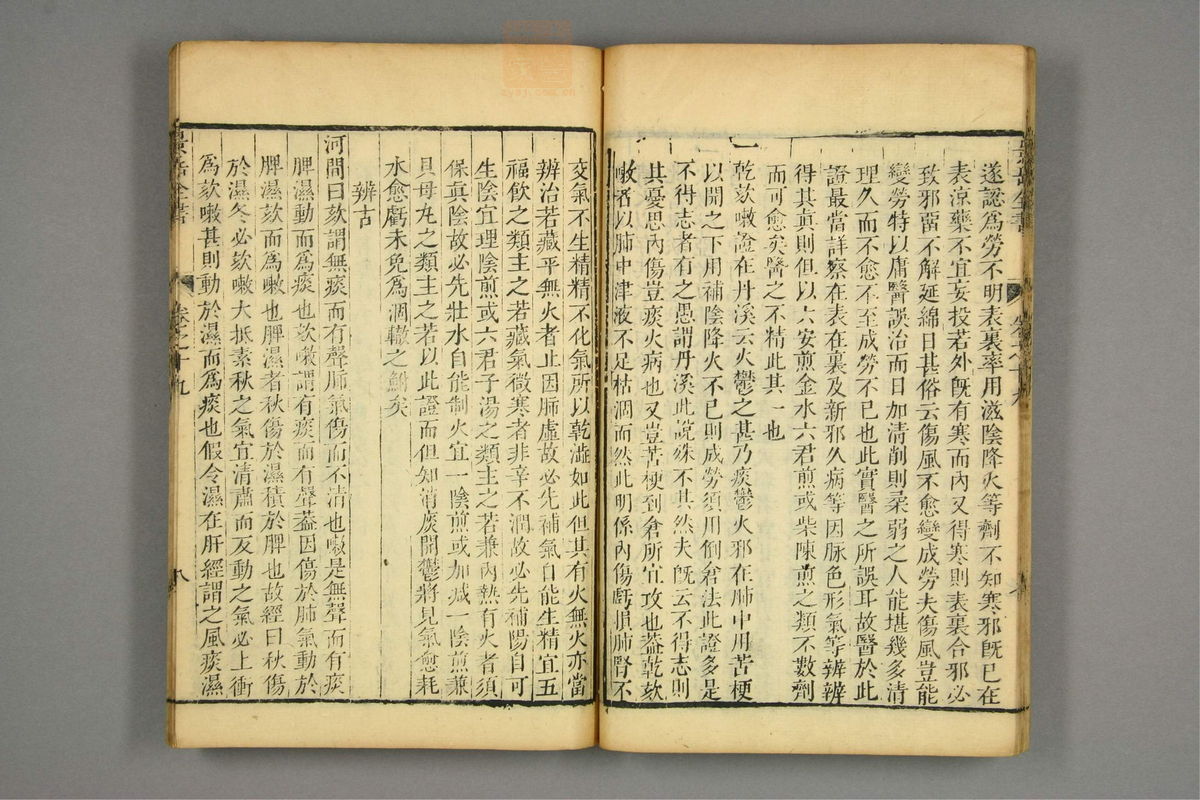 遂認為勞不明表裏率用滋陰降火等劑不知寒邪旣已在
表涼藥不宜妄投若外旣有寒而內又得寒則表裏合邪必
致邪畱不解延綿日甚俗云傷風不愈變成勞夫傷風豈能
變勞特以庸醫誤治而日加清削則柔弱之人能堪幾多清
理久而不愈不至成勞不已也此實醫之所誤耳故醫於此
證最當詳察在表在裏及新邪久病等因脉色形氣等辨辨
得其真則但以六安煎金水六君煎或柴陳煎之類不數劑
而可愈矣醫之不精此其一也
一
乾欬嗽證在丹溪云火鬱之甚乃痰鬱火邪在肺中用苦梗
以開之下用補陰降火不已則成勞須用倒倉法此證多是
不得志者有之愚謂丹溪此說殊不其然夫旣云不得志則
其憂思內傷豈痰火病也又豈苦梗到倉所宜攻也葢乾欬
嗽者以肺中津液不足枯涸而然此明係內傷虧損肺腎不
交氣不生精精不化氣所以乾澁如此但其有火無火亦當
辨治若藏平無火者止因肺虛故必先補氣自能生精宜五
福飲之類主之若藏氣微寒者非辛不潤故必先補陽自可
生陰宜理陰煎或六君子湯之類主之若兼內熱有火者須
保真陰故必先壯水自能制火宜一陰煎或加減一陰煎兼
貝母丸之類主之若以此證而但知消痰開鬱將見氣愈耗
水愈虧未免為涸轍之鮒矣
辨古
河間曰欬謂無痰而有聲肺氣傷而不清也嗽是無聲而有痰
脾濕動而為痰也欬嗽謂有痰而有聲葢因傷於肺氣動於
脾濕欬而為嗽也脾濕者秋傷於濕積於脾也故經曰秋傷
於濕冬必欬嗽大抵素秋之氣宜清肅而反動之氣必上衝
為欬嗽甚則動於濕而為痰也假令濕在肝經謂之風痰濕
景岳全書
卷之十九
八